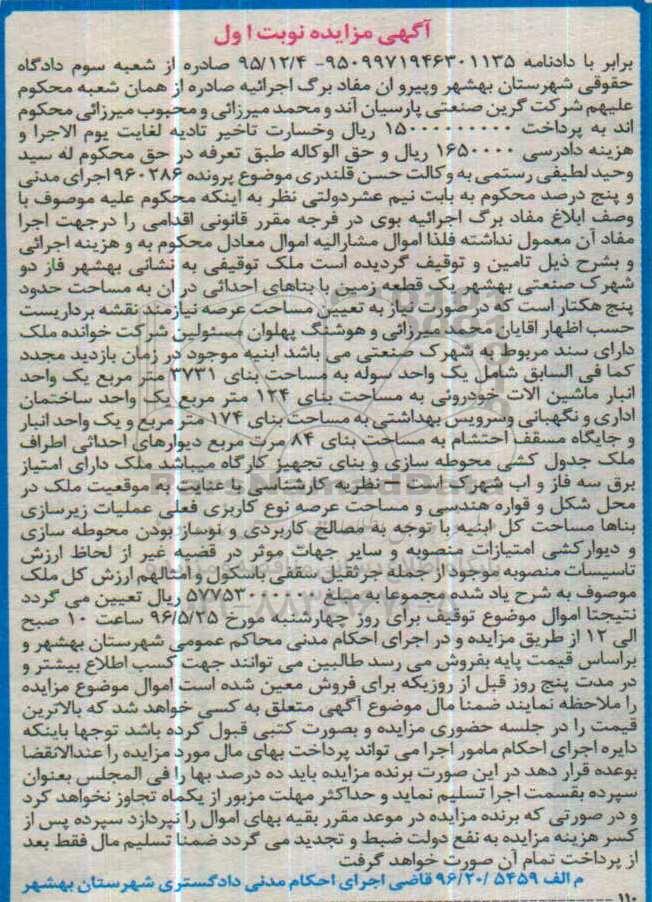 آگهی مزایده نوبت اول
برابر با دادنامه ۹۵۰۹۹۷۱۹۴۶۳۰۱۱۳۵- ۹۵/۱۲/۴ صادره از شعبه سوم دادگاه
حقوقی شهرستان بهشهر وپیرو ان مفاد برگ اجرائیه صادره از همان شعبه محکوم
علیهم شرکت گرین صنعتی پارسیان آند و محمد میرزائی و محبوب میرزائی محکوم
اند به پرداخت ۱۵۰۰۰۰۰۰۰۰۰ ریال وخسارت تاخیر تادیه لغایت یوم الاجرا و
هزینه دادرسی ۱۶۵۰۰۰۰ ریال و حق الوکاله طبق تعرفه در حق محکوم له سید
وحید لطیفی رستمی به وکالت حسن قلندری موضوع پرونده ۹۶۰۲۸۶ اجرای مدنی
و پنج درصد محکوم به بابت نیم عشردولتی نظر به اینکه محکوم علیه موصوف با
وصف ابلاغ مفاد برگ اجرائیه بوی در فرجه مقرر قانونی اقدامی را درجهت اجرا
مفاد آن معمول نداشته فلذا اموال مشارالیه اموال معادل محکوم به و هزینه اجرائی
و بشرح ذیل تامین و توقیف گردیده است ملک توقیفی به نشانی بهشهر فاز دو
شهرک صنعتی بهشهر یک قطعه زمین با بناهای احداثی در ان به مساحت حدود
پنج هکتار است که در صورت نیاز به تعیین مساحت عرصه نیازمند نقشه برداریست
حسب اظهار اقایان محمد میرزائی و هوشنگ پهلوان مسئولین شرکت خوانده ملک
دارای سند مربوط به شهرک صنعتی می باشد ابنیه موجود در زمان بازدید مجدد
کما فی السابق شامل یک واحد سوله به مساحت بنای ۳۷۳۱ متر مربع یک واحد
انبار ماشین الات خودروئی به مساحت بنای ۱۲۴ متر مربع یک واحد ساختمان
اداری و نگهبانی وسرویس بهداشتی به مساحت بنای ۱۷۴ متر مربع و یک واحد انبار
و جایگاه مسقف احتشام به مساحت بنای ۸۴ مرت مربع دیوارهای احداثی اطراف
ملک جدول کشی محوطه سازی و بنای تجهیز کارگاه میباشد ملک دارای امتیاز
برق سه فاز و اب شهرک است - نظریه کارشناسی با عنایت به موقعیت ملک در
محل شکل و قواره هندسی و مساحت عرصه نوع کاربزی فعلی عملیات زیرسازی
بناها مساحت کل ابنیه با توجه به مصالح کاربردی و نوساز بودن محوطه سازی
و دیوارکشی امتیازات منصوبه و سایر جهات موثر در قضیه غیر از لحاظ ارزش
تاسیسات منصوبه موجود از جمله جرثقیل سقفی باسکول و امثالهم ارزش کل ملک
موصوف به شرح یاد شده مجموعا به مبلغ ریال تعیین می گردد
نتیجتا اموال موضوع توقیف برای روز چهارشنبه مورخ ۹۶/۵/۲۵ ساعت ۱۰ صبح
الی ۱۲ از طریق مزایده و در اجرای احکام مدنی محاکم عمومی شهرستان بهشهر و
براساس قیمت پایه بفروش می رسد طالبین می توانند جهت کسب اطلاع بیشتر و
در مدت پنج روز قبل از روزیکه برای فروش معین شده است اموال موضوع مزایده
را ملاحظه نمایند ضمنا مال موضوع آگهی متعلق به کسی خواهد شد که بالاترین
قیمت را در جلسه حضوری مزایده و بصورت کتبی قبول کرده باشد توجها باینکه
دایره اجرای احکام مامور اجرا می تواند پرداخت بهای مال مورد مزایده را عندالانقضا
بوعده قرار دهد در این صورت برنده مزایده باید ده درصد بها را فی المجلس بعنوان
سپرده بقسمت اجرا تسلیم نماید و حداکثر مهلت مزبور از یکماه تجاوز نخواهد کرد
و در صورتی که برنده مزایده در موعد مقرر بقیه بهای اموال را نپردازد سپرده پس از
کسر هزینه مزایده به نفع دولت ضبط و تجدید می گردد ضمنا تسلیم مال فقط بعد
از پرداخت تمام آن صورت خواهد گرفت
م الف ۵۴۵۹ /۹۶/۲۰ قاضی اجرای احکام مدنی دادگستری شهرستان بهشهر
۱۱۰